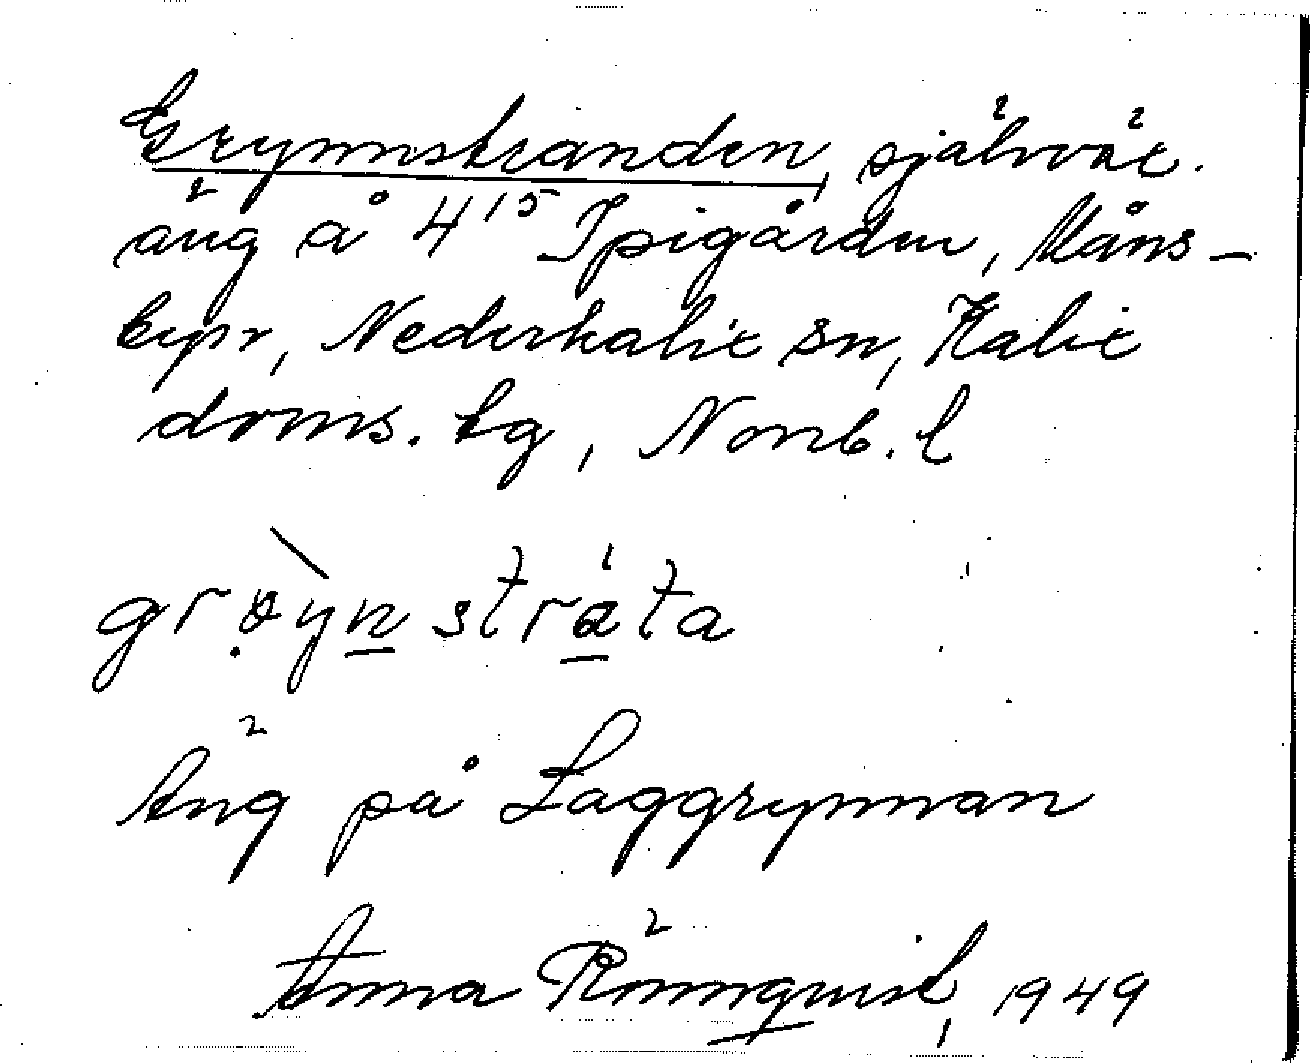 Grynnstranden, självväx.
äng å 4¹⁵ Ipigården, Måns-
byn, Nederkalix sn, Kalix
doms. tg, Norrb. l
grøynstrata
Äng på Laggrynnan
Anna Rönnquist, 1949